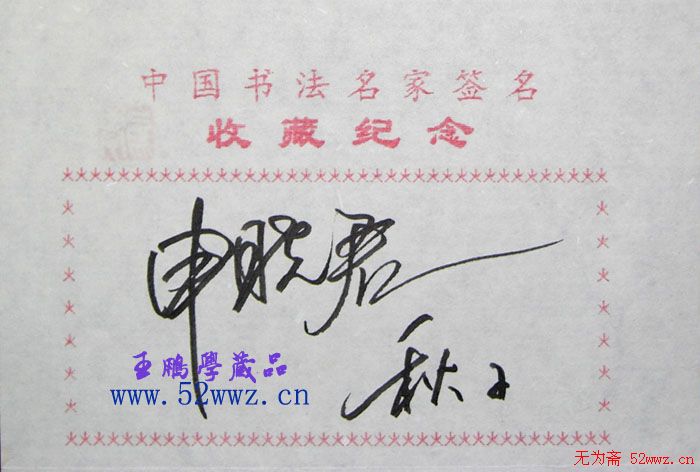 中国书法名家签名
收藏纪念
申晓君
秋子
王鹏學藏品
www.52wwz.cn
无为斋 52wwz.cn